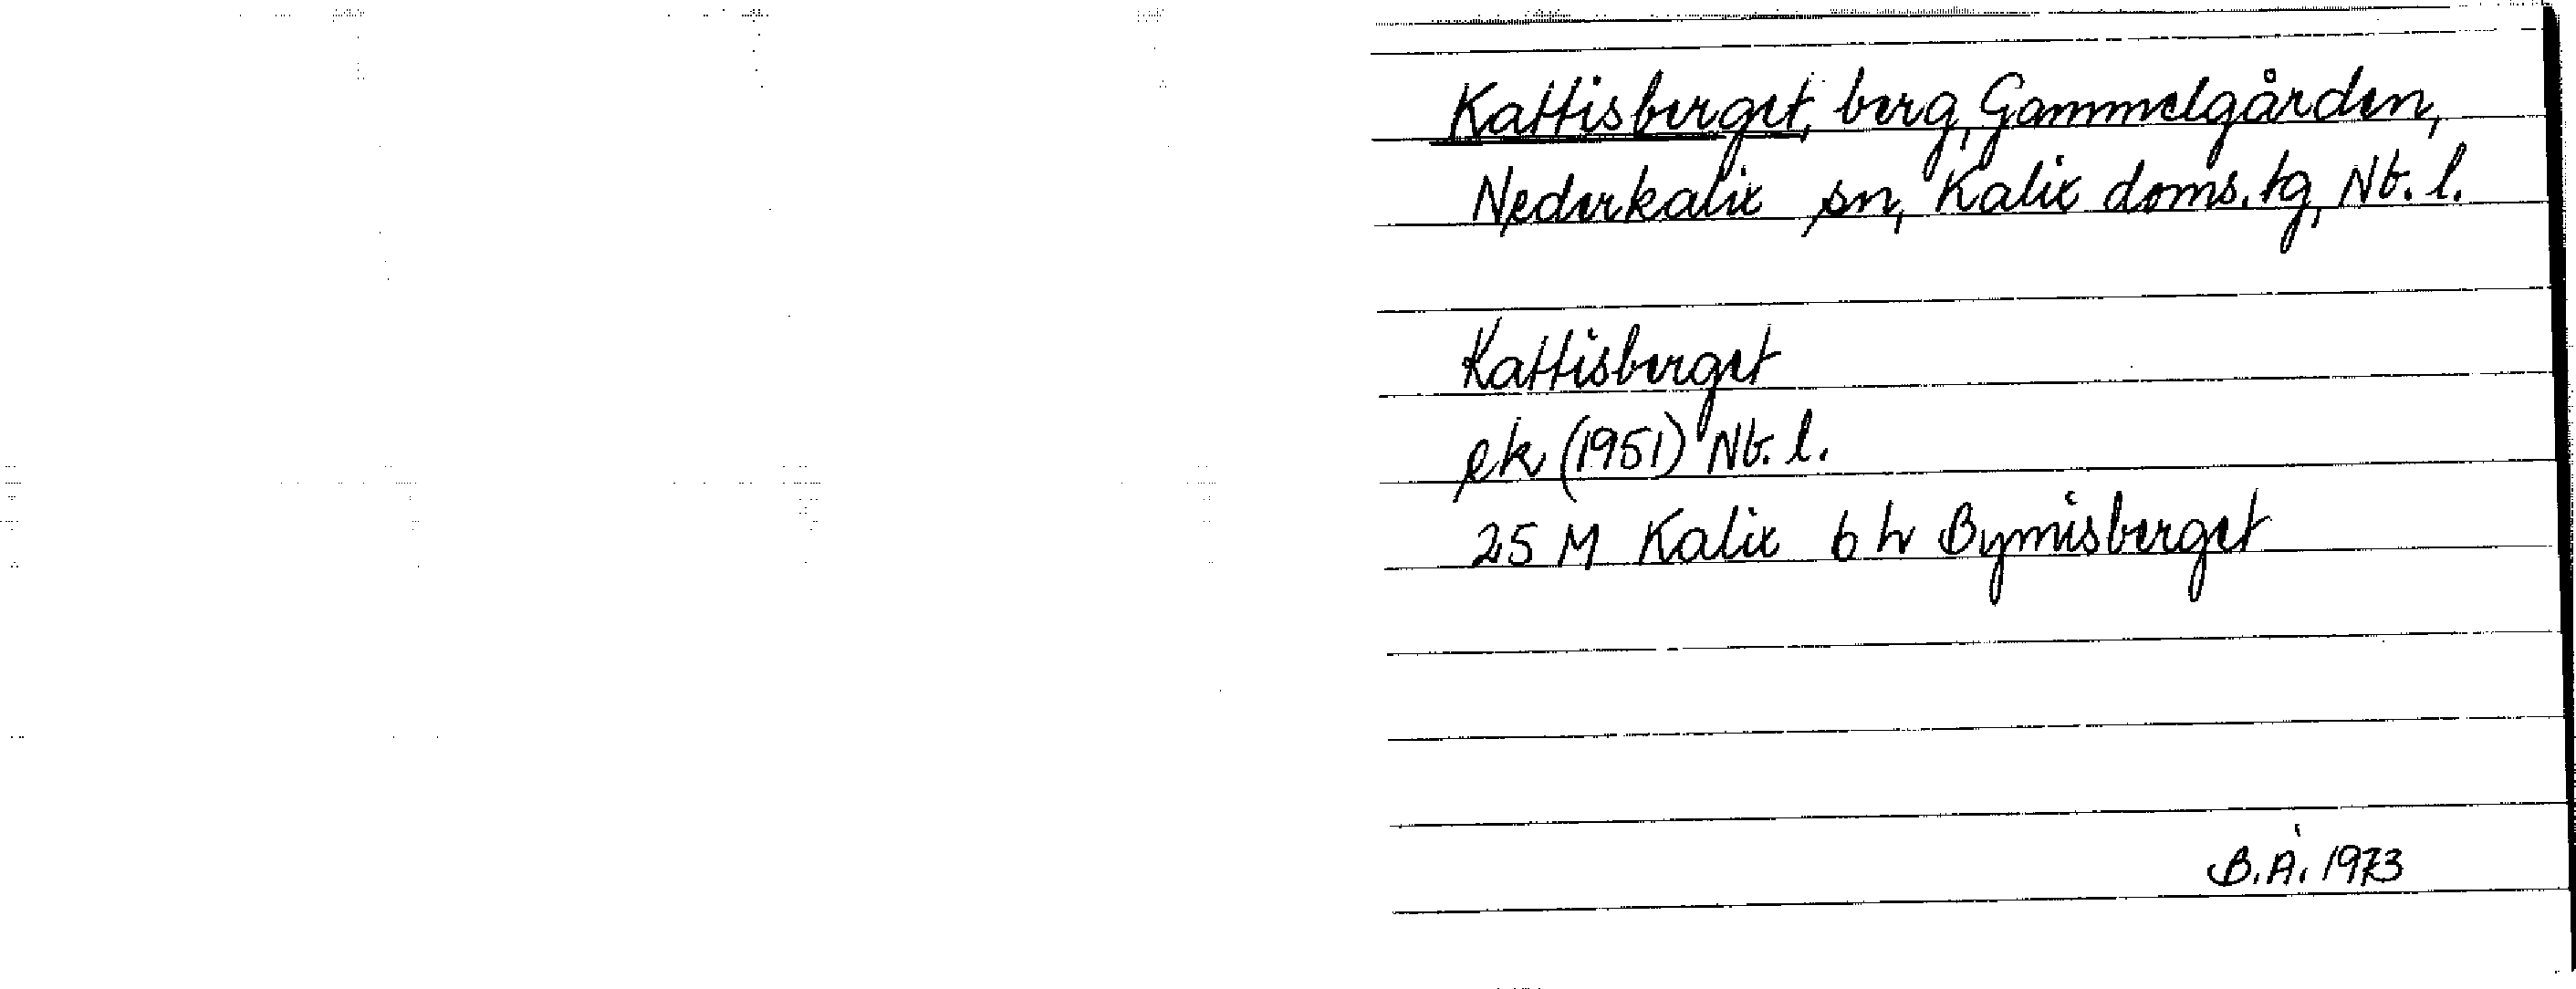 Kattisberget, berg, Gammelgården,
Nederkalix sn, Kalix doms. tg, Nb. l.
Kattisberget
ek (1951) Nb. l.
25 M Kalix 6 h Bymisberget
B.Å. 1973